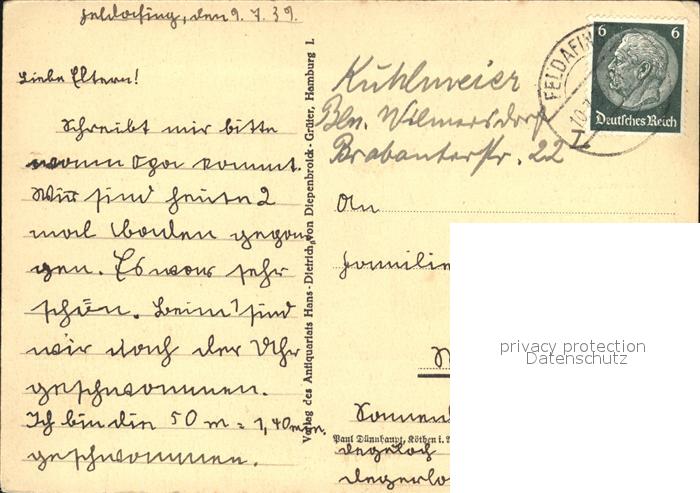 Feldafing, den 9.7.39.
Liebe Eltern!
Schreibt mir bitte
wann Opa kommt.
Wir sind heute 2
mal baden gegan
gen. Es war sehr
schön. Beim 1 sind
wir nach der Uhr
geschwommen.
Ich bin die 50 m = 1,40 min.
geschwommen.
Verlag des Antiquariats Hans-Dietrich von Diepenbroick-Grüter, Hamburg 1.
Kuhlmeier
Bln. Wilmersdorf
Brabanterstr. 22
An
Familie
Sonnen
Paul Dünnhaupt, Köthen i. A
Degerloch
Degerlo
FELDAFIN
10.
6 6
Deutsches Reich
privacy protection
Datenschutz